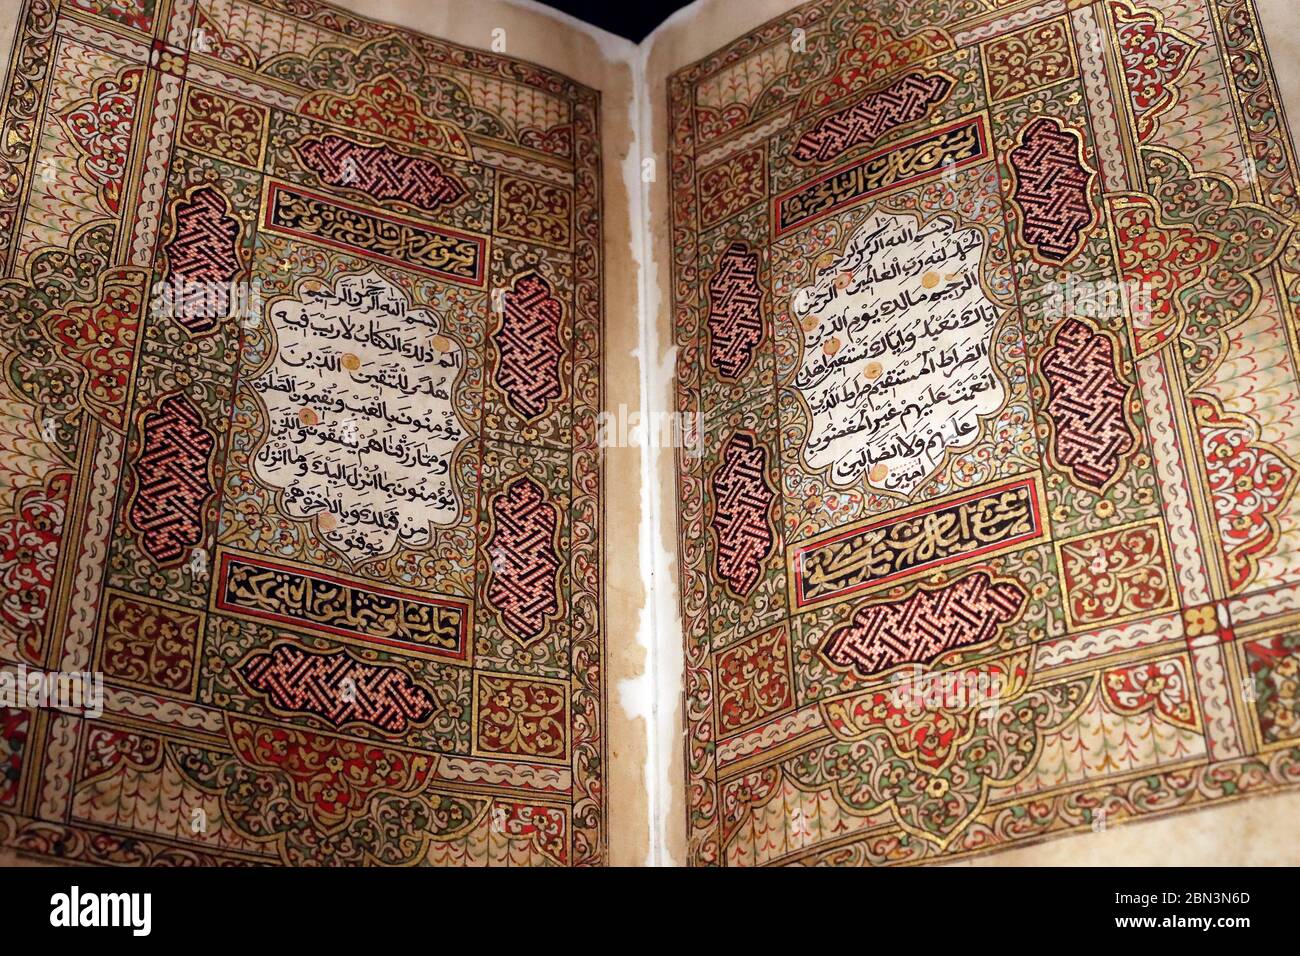 بسم الله الرحمن الرحيم
الحمد لله رب العالمين الرحمن
الرحيم مالك يوم الدين
اياك نعبد واياك نستعين اهدنا
الصراط المستقيم صراط الذين
انعمت عليهم غير المغضوب
عليهم ولا الضالين
امين
بسم الله الرحمن الرحيم
الم ذلك الكتاب لا ريب فيه
هدى للمتقين الذين
يؤمنون بالغيب ويقيمون الصلوة
ومما رزقناهم ينفقون والذين
يؤمنون بما انزل اليك وما انزل
من قبلك وبالاخرة هم
يوقنون
alamy
Image ID: 2BN3N6D
www.alamy.com